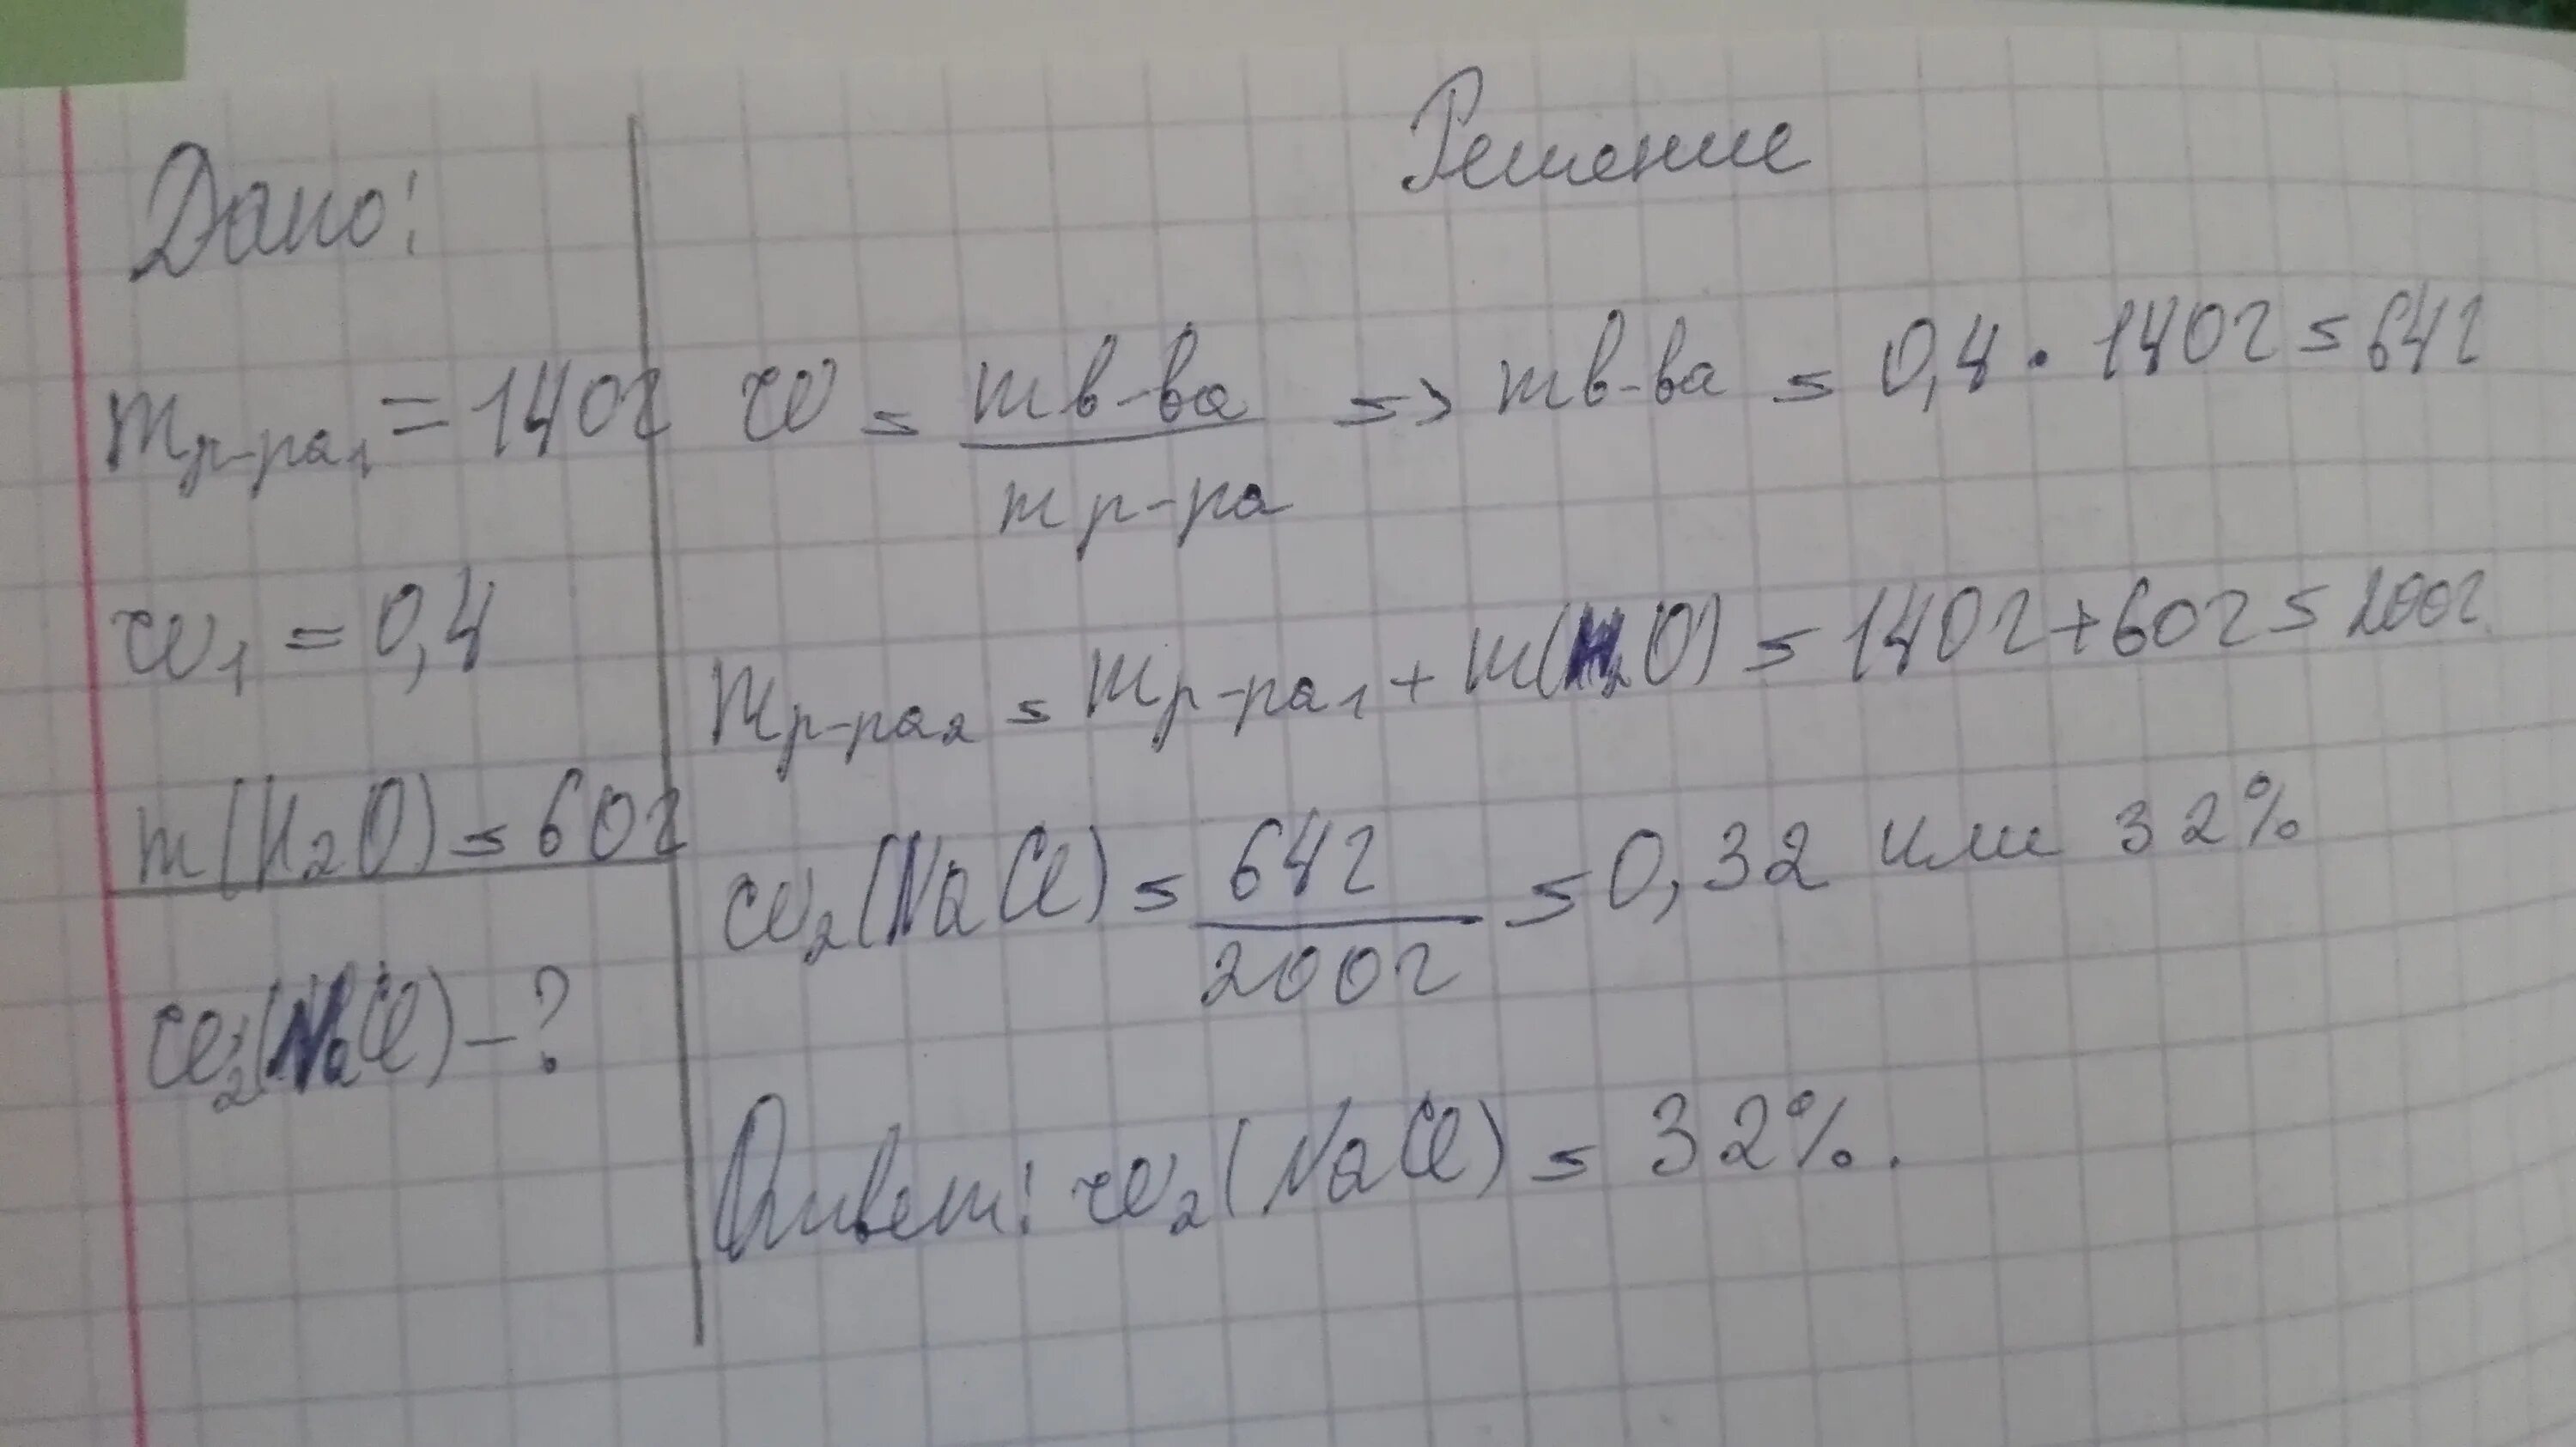 Дано:
mр-ра1 = 140г
w1 = 0,4
m(H2O) = 60г
w2(NaCl) - ?
Решение
w = mв-ва / mр-ра => mв-ва = 0,4 · 140г = 64г
mр-ра2 = mр-ра1 + m(H2O) = 140г + 60г = 200г
w2(NaCl) = 64г / 200г = 0,32 или 32%
Ответ: w2(NaCl) = 32%.